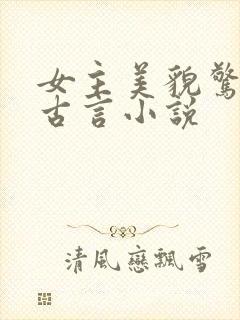 女主美貌驚
古言小說
清風戀飄雪